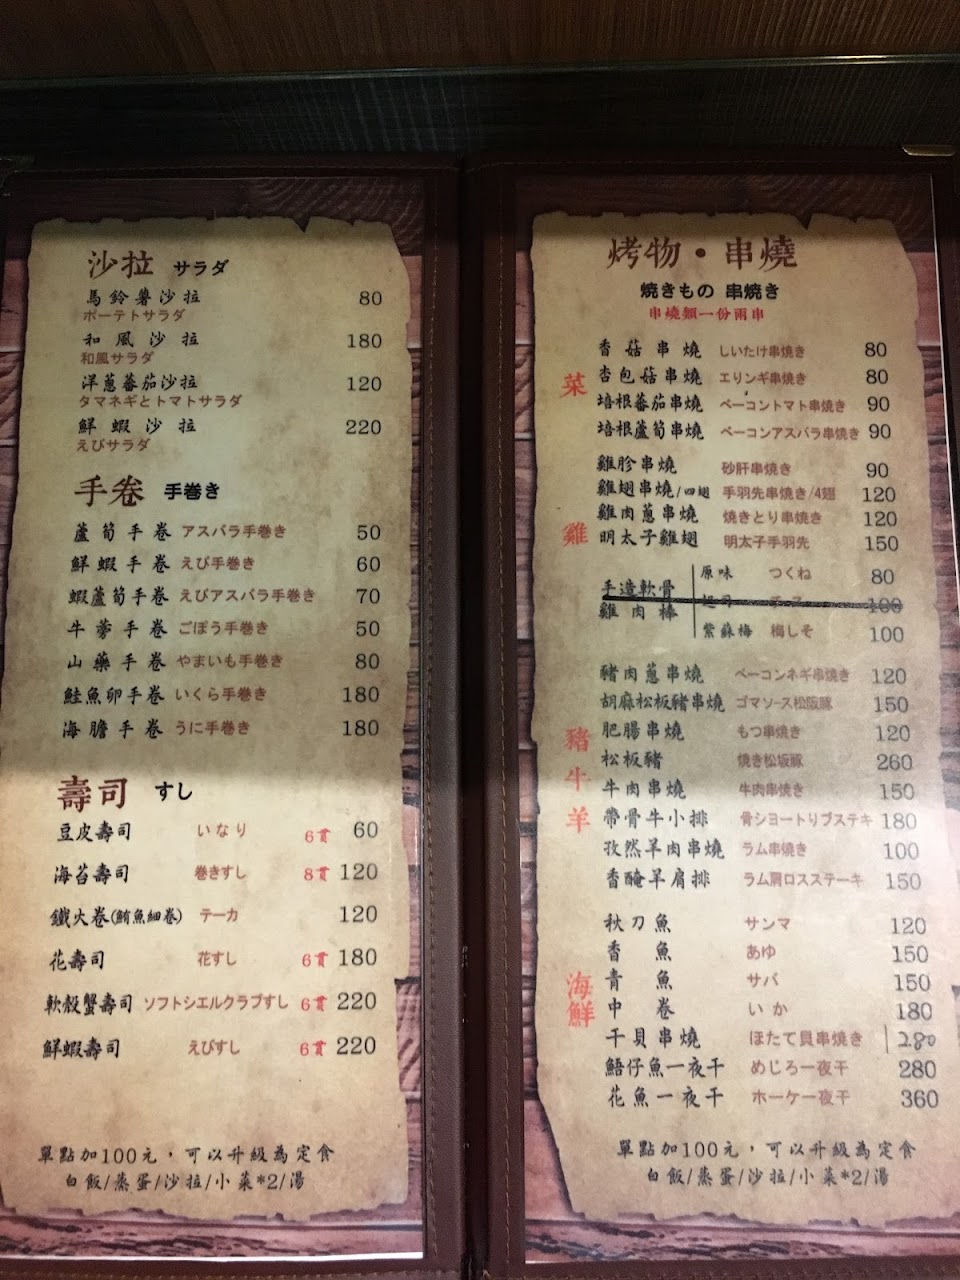 沙拉 サラダ
馬鈴薯沙拉 80
ポーテトサラダ
和風沙拉 180
和風サラダ
洋蔥蕃茄沙拉 120
タマネギとトマトサラダ
鮮蝦沙拉 220
えびサラダ
手卷 手巻き
蘆筍手卷 アスパラ手巻き 50
鮮蝦手卷 えび手巻き 60
蝦蘆筍手卷 えびアスパラ手巻き 70
牛蒡手卷 ごぼう手巻き 50
山藥手卷 やまいも手巻き 80
鮭魚卵手卷 いくら手巻き 180
海膽手卷 うに手巻き 180
壽司 すし
豆皮壽司 いなり 6貫 60
海苔壽司 巻きすし 8貫 120
鐵火卷(鮪魚細卷) テーカ 120
花壽司 花すし 6貫 180
軟殼蟹壽司 ソフトシエルクラブすし 6貫 220
鮮蝦壽司 えびすし 6貫 220
單點加100元，可以升級為定食
白飯/蒸蛋/沙拉/小菜*2/湯
烤物・串燒
焼きもの 串焼き
串燒類一份兩串
菜
香菇串燒 しいたけ串焼き 80
杏包菇串燒 エリンギ串焼き 80
培根蕃茄串燒 ベーコントマト串焼き 90
培根蘆筍串燒 ベーコンアスパラ串焼き 90
雞
雞胗串燒 砂肝串焼き 90
雞翅串燒/四翅 手羽先串焼き/4翅 120
雞肉蔥串燒 焼きとり串焼き 120
明太子雞翅 明太子手羽先 150
手造軟骨雞肉棒 原味 つくね 80
100
紫蘇梅 梅しそ 100
豬牛羊
豬肉蔥串燒 ベーコンネギ串焼き 120
胡麻松板豬串燒 ゴマソース松阪豚 150
肥腸串燒 もつ串焼き 120
松板豬 焼き松坂豚 260
牛肉串燒 牛肉串焼き 150
帶骨牛小排 骨ショートリブステキ 180
孜然羊肉串燒 ラム串焼き 100
香醃羊肩排 ラム肩ロスステーキ 150
海鮮
秋刀魚 サンマ 120
香魚 あゆ 150
青魚 サバ 150
中卷 いか 180
干貝串燒 ほたて貝串焼き 280
鯃仔魚一夜干 めじろ一夜干 280
花魚一夜干 ホーケ一夜干 360
單點加100元，可以升級為定食
白飯/蒸蛋/沙拉/小菜*2/湯